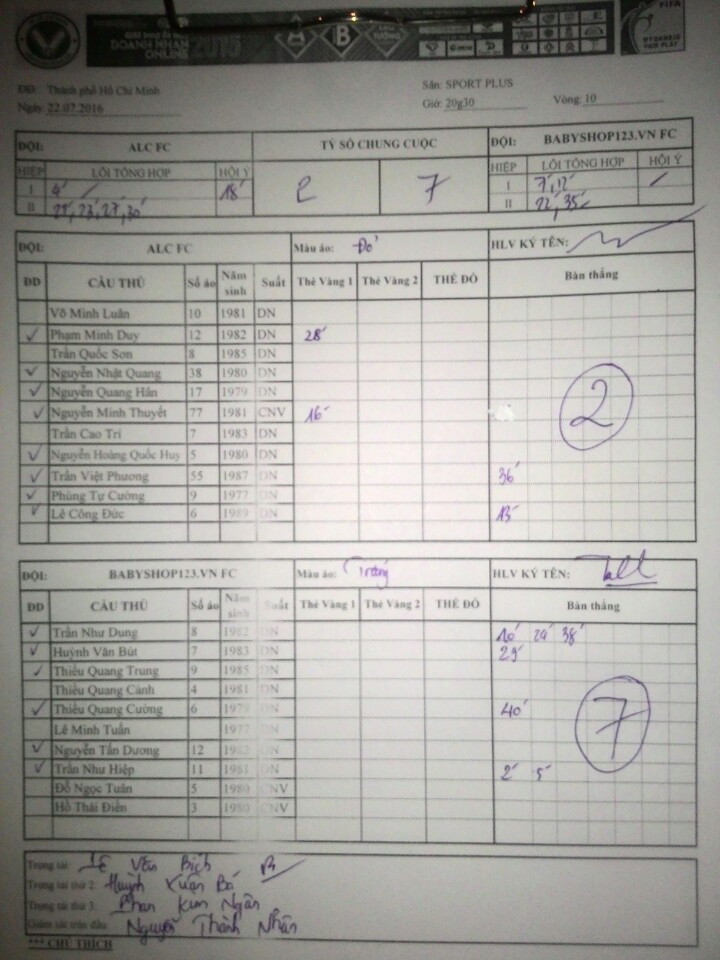 DOANH NHÂN
ONLINE 2015
A B
FIFA
ĐĐ: Thành phố Hồ Chí Minh
Sân: SPORT PLUS
Ngày: 22.07.2016
Giờ: 20g30
Vòng: 10
ĐỘI: ALC FC
TỶ SỐ CHUNG CUỘC
ĐỘI: BABYSHOP123.VN FC
HIỆP LỖI TỔNG HỢP HỘI Ý
HIỆP LỖI TỔNG HỢP HỘI Ý
I 4' 18'
2 7
I 7', 12'
II 23', 27', 30'
II 22', 35'
ĐỘI: ALC FC Màu áo: Đỏ HLV KÝ TÊN:
DD CẦU THỦ Số áo Năm sinh Suất Thẻ Vàng 1 Thẻ Vàng 2 THẺ ĐỎ Bàn thắng
Võ Minh Luân 10 1981 DN
✓ Phạm Minh Duy 12 1982 DN 28'
Trần Quốc Sơn 8 1985 DN
✓ Nguyễn Nhật Quang 38 1980 DN
✓ Nguyễn Quang Hân 17 1979 DN
✓ Nguyễn Minh Thuyết 77 1981 CNV 16'
Trần Cao Trí 7 1983 DN
✓ Nguyễn Hoàng Quốc Huy 5 1980 DN
✓ Trần Việt Phương 55 1987 DN 36'
✓ Phùng Tự Cường 9 1977 DN
✓ Lê Công Đức 6 1989 DN 13'
2
ĐỘI: BABYSHOP123.VN FC Màu áo: Trắng HLV KÝ TÊN:
DD CẦU THỦ Số áo Năm sinh Suất Thẻ Vàng 1 Thẻ Vàng 2 THẺ ĐỎ Bàn thắng
✓ Trần Như Dung 8 1982 DN 10' 29' 38'
✓ Huỳnh Văn Bút 7 1983 DN 29'
✓ Thiều Quang Trung 9 1985 DN
Thiều Quang Cảnh 4 1981 DN
✓ Thiều Quang Cường 6 1979 DN 40'
Lê Minh Tuấn 1977 DN
✓ Nguyễn Tấn Dương 12 DN
✓ Trần Như Hiệp 11 1981 DN 2' 5'
Đỗ Ngọc Tuân 5 1980 CNV
Hồ Thái Điền 3 1980 CNV
7
Trọng tài: Lê Văn Bích
Trọng tài thứ 2: Huỳnh Xuân Bá
Trọng tài thứ 3: Phan Kim Ngân
Giám sát trận đấu: Nguyễn Thành Nhân
*** CHÚ THÍCH